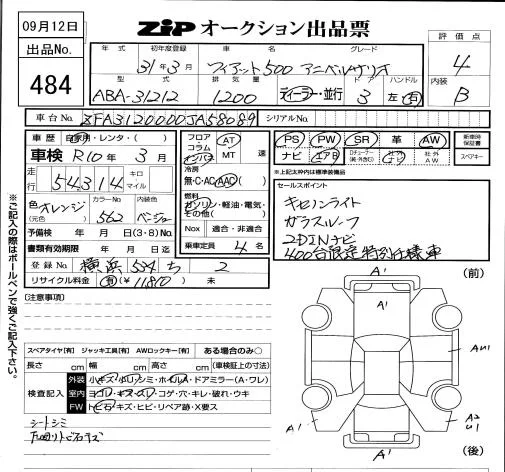 09月12日
ZIP オークション出品票
出品No.
484
年式 初年度登録 車名 グレード
31年3月 フィアット500 アニベルサリオ
型式 排気量 ドア ハンドル
ABA-31212 1200 ディーラー・並行 3 左・右
評価点
4
内装
B
車台No. ZFA3120000JA58089 シリアルNo.
車歴 自家用・レンタ・( )
車検 R10年3月
走行 54314 キロ マイル
色(元色) オレンジ カラーNo. 562 内装色 ベージュ
予備検 年 月 日(3・8)No.
書類有効期限 年 月 日迄
登録No. 横浜 534 ち 2
リサイクル料金 有(¥11810) 未
フロア コラム インパネ AT MT 速
冷房 無・C・AC・AAC
燃料 ガソリン・軽油・電気・その他( )
Nox 適合・非適合
乗車定員 4名
PS PW SR 革 AW
ナビ エアB Dチューナー(純・外含む) 社外ナビ 社外AW
新車時保証書
スペアキー
※上記太枠内は標準装備品
セールスポイント
キセノンライト
ガラスルーフ
2DINナビ
400台限定特別仕様車
※ご記入の際はボールペンで強くご記入下さい。
[注意事項]
スペアタイヤ[有] ジャッキ工具[有] AWロックキー[有] ある場合のみ○
長さ cm 幅 cm 高さ cm (車検証上の寸法)
検査記入
外装 小キズ・小凹・シミ・ホイルA・ドアミラー(A・ワレ)
室内 ヨゴレ・キズ・スレ・コゲ・穴・キレ・破れ・ウキ
FW トビ石・キズ・ヒビ・リペア跡・X要ス
シートシミ
(前)
A'
A'
AU1
A'
A'
A2
U1
(後)